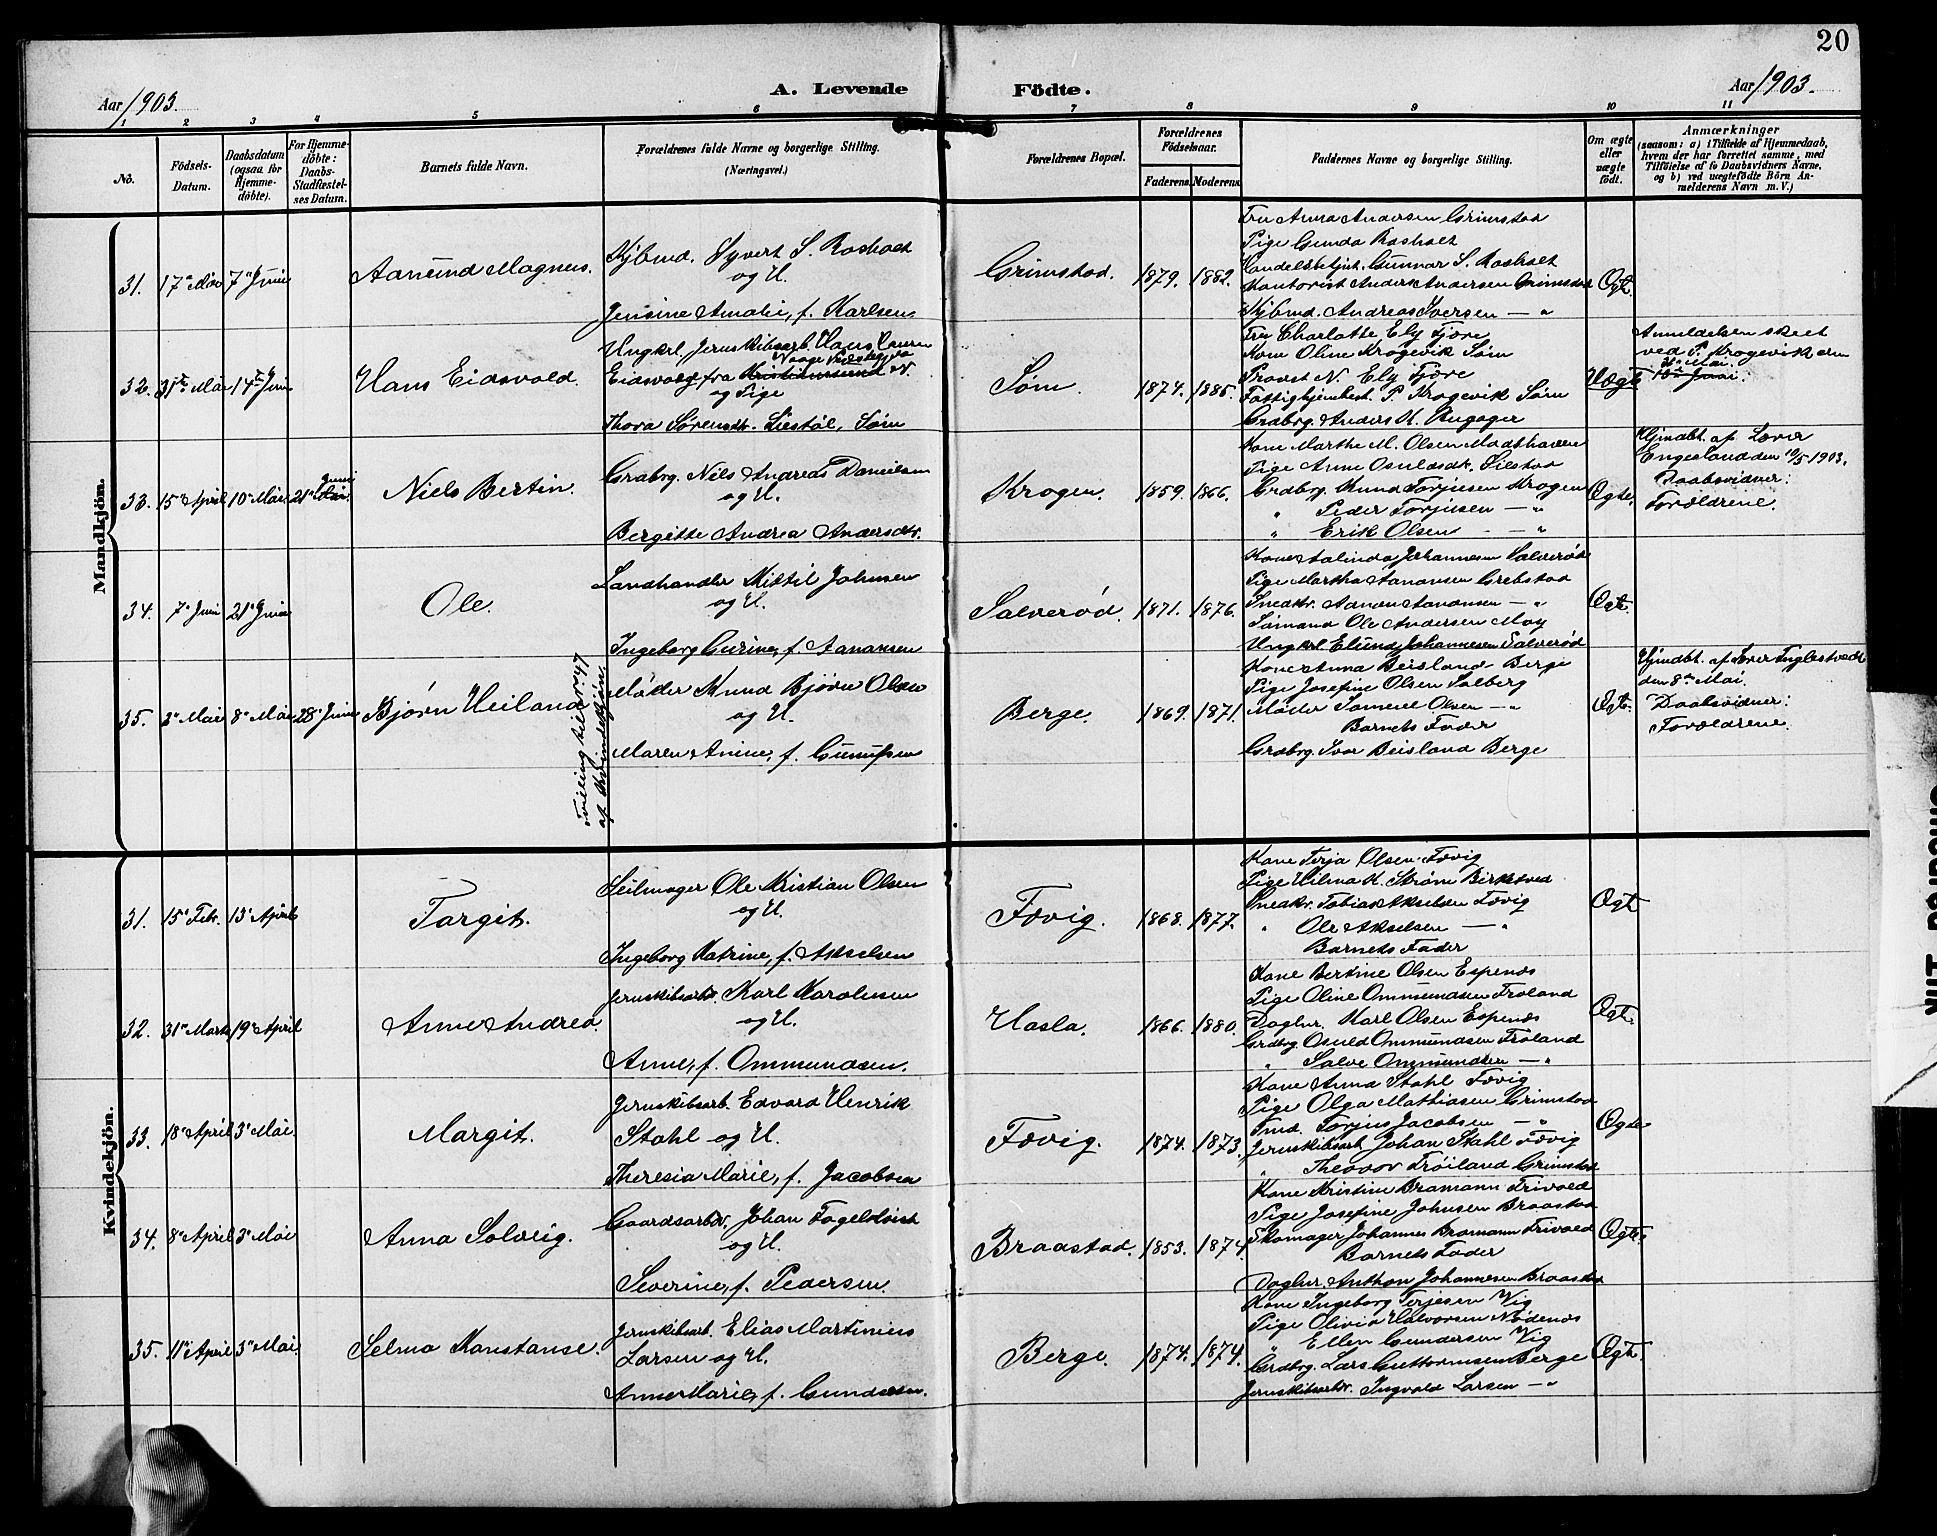 20
Aar 1903.
A. Levende Födte.
Aar 1903.
1 2 3 4 5 6 7 8 9 10 11
No.
Födsels-Datum.
Daabsdatum (ogsaa for Hjemme-döbte).
For Hjemme-döbte: Daabs-Stadfæstel-ses Datum.
Barnets fulde Navn.
Forældrenes fulde Navne og borgerlige Stilling.
(Næringsvei.)
Forældrenes Bopæl.
Forældrenes Födselsaar.
Faderens. Moderens.
Faddernes Navne og borgerlige Stilling.
Om ægte eller uægte födt.
Anmærkninger
(saasom: a) i Tilfælde af Hjemmedaab, hvem der har forrettet samme, med Tilföielse af to Daabsvidners Navne, og b) ved uægtefödte Börn An-melderens Navn m. V.)
Mandkjön.
31. 17de Mai 7de Juni
Aanund Magnus.
Kjbmd. Syvert S. Rosholt
og H.
Jensine Amalie, f. Karlsen
Grimstad. 1879. 1882.
Fru Anna Andersen Grimstad
Pige Gunda Rosholt
Handelsbetjnt. Gunnar S. Rosholt
Kontorist Anders Andersen Grimstad
Kjbmd. Andreas Iversen — "
Ægt.
32. 31te Mai 14de Juni
Hans Eidsvold.
Ungkrl. Jernskibsarb. Hans
Eidsvold, fra Kristianssund N
og Pige
Thora Sørensdtr. Liestøl, Søm
Søm. 1874. 1885.
Fru Charlotte Ely Fjære
Kone Oline Krogevik Søm
Provst N. Ely Fjære
Fattighjembest. P. Krogevik Søm
Grdbrg. Anders H. Rugager
Uægte
Anmeldelsen skeet
ved P. Krogevik den
33. 15de April 10de Mai 21de Juni
Niels Bertin.
Grdbrg. Niels Andreas Danielsen
og H.
Bergitte Andrea Andersdtr.
Krogen. 1859. 1866.
Kone Marthe M. Olsen
Pige Anne Osuldsdtr.
Grdbrg. Knud Torjusen Krogen
" Peder Torjusen — "
" Erik Olsen — "
Ægte.
Hjmdbt. af Lærer
Engesland den 10/5 1903.
Daabsvidner:
Forældrene.
34. 7de Juni 21de Juni
Ole.
Landhandler Kittil Johnsen
og H.
Ingeborg Gurine, f. Aanonsen
Salverød. 1871. 1876.
Kone Aalinda Johannesen Salverød
Pige Martha Aanonsen Grebstad
Snedkr. Aanon Aanonsen — "
Sømand Ole Andersen Moy
Ungkrl. Elund Johannesen Salverød
Ægt.
35. 2de Mai 8de Mai 28de Juni
Bjørn Heiland
Tvilling til nr. 47
af Kvindekjøn.
Møller Knud Bjørn Olsen
og H.
Maren Anine, f. Gunufsen
Berge. 1869. 1871.
Kone Anna Beisland Berge
Pige Josefine Olsen Solberg
Møller Samuel Olsen — "
Barnets Fader
Grdbrg. Ivar Beisland Berge
Ægt.
Hjmdbt. af Lærer Fuglestvedt
den 8de Mai.
Daabsvidner:
Forældrene.
Kvindekjön.
31. 15de Febr. 13de April
Targit.
Seilmager Ole Kristian Olsen
og H.
Ingeborg Katrine, f. Akselsen
Fævig. 1868. 1877.
Kone Terja Olsen Fævig
Pige Hilma K. Strøm Birketved
Snedkr. Tobias Akselsen Fævig
" Ole Akselsen — "
Barnets Fader
Ægt
32. 31te Marts 19de April
Anne Andrea.
Jernskibsarbr. Karl Karolusen
og H.
Anne, f. Ommundsen.
Hasla. 1866. 1880.
Kone Bertine Olsen Espenæs
Pige Oline Ommundsen Froland
Daglnr. Karl Olsen Espenæs
Grdbrg. Osuld Ommundsen Froland
" Salve Ommundsen — "
Ægt.
33. 18de April 3de Mai.
Margit.
Jernskibsarb. Edvard Henrik
Stahl og H.
Theresia Marie, f. Jacobsen
Fævig. 1874. 1873.
Kone Anna Stahl Fævig
Pige Olga Mathiasen Grimstad
Tmd. Torjus Jacobsen — "
Jernskibsarb. Johan Stahl Fævig
" Theodor Frøiland Grimstad
Ægte
34. 8de April 3de Mai
Anna Solveig.
Gaardsarbdr. Johan Fogelkvist
og H.
Severine, f. Pedersen.
Braastad. 1853. 1874
Kone Kristine Bromann Trivold
Pige Josefine Johnsen Braastad
Skomager Johannes Bromann Trivold
Barnets Fader
Daglnr. Anthon Johannesen Braastad
Ægte.
35. 11te April 3de Mai.
Selma Konstanse.
Jernskibsarb. Elias Martinius
Larsen og H.
Anne Marie, f. Gundersen.
Berge. 1874. 1874.
Kone Ingeborg Terjesen Vig
Pige Olivia Halvorsen Nødenæs
" Ellen Gundersen Vig
Grdbrg. Lars Guttormsen Berge
Jernskibsarbr. Ingvald Larsen — "
Ægt.